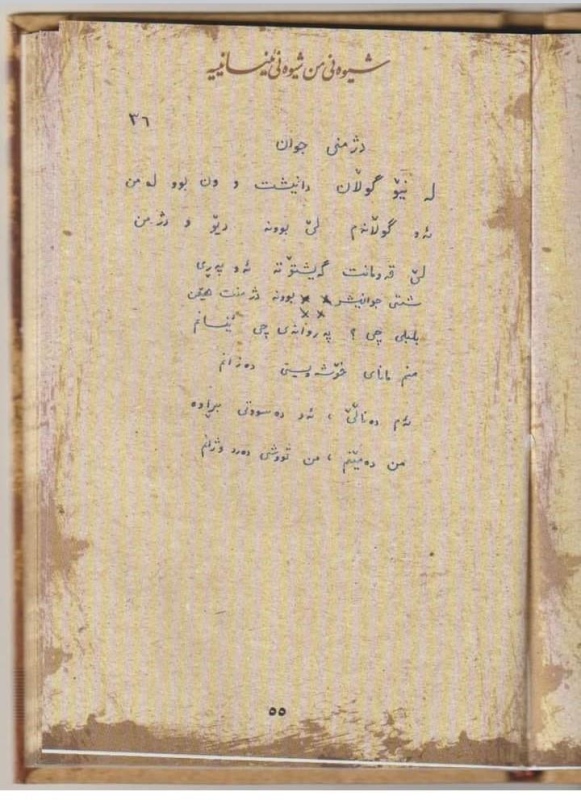 شیوەنی من شیوەنی ئینسانییە
٣٦
دژمنی جوان
لە نێو گوڵان دانیشت و ون بوو لە من
ئەو گوڵانەم لێ بوونە دێو و دژمن
لێ قەومانت گەیشتۆتە ئەو پەڕی
شتی جوانیش بوونە دژمنت هێمن
بلبلی چی ؟ پەروانەی چی ئینسانم
منم مانای خۆشەویستی دەزانم
ئەم دەناڵێ ، ئەو دەسووتێ بڕاوە
من دەمێنم ، من تووشی دەرد و ژانم
٥٥